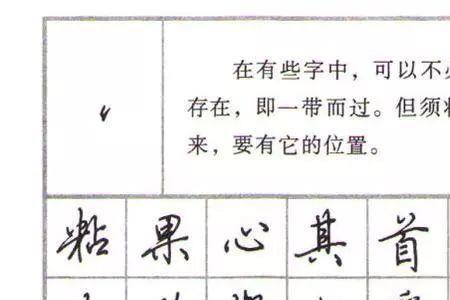 在有些字中，可以不
存在，即一带而过。但须
来，要有它的位置。
粘果心其首